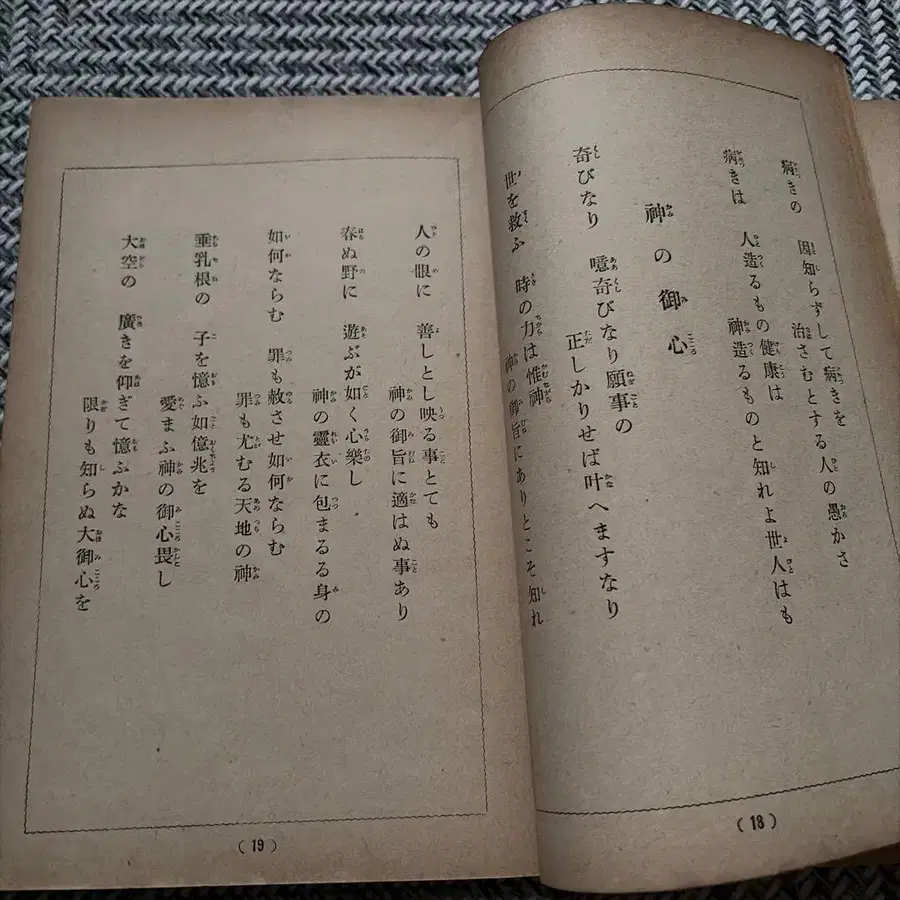 病きの 因知らずして病きを
治さむとする人の愚かさ
病きは 人造るもの健康は
神造るものと知れよ世人はも
神の御心
奇びなり 噫奇びなり願事の
正しかりせば叶へますなり
世を救ふ 時の力は惟神
神の御旨にありとこそ知れ
(18)
人の眼に 善しとし映る事とても
神の御旨に適はぬ事あり
春ぬ野に 遊ぶが如く心樂し
神の靈衣に包まるる身の
如何ならむ 罪も赦させ如何ならむ
罪も尤むる天地の神
垂乳根の 子を憶ふ如億兆を
愛まふ神の御心畏し
大空の 廣きを仰ぎて憶ふかな
限りも知らぬ大御心を
(19)